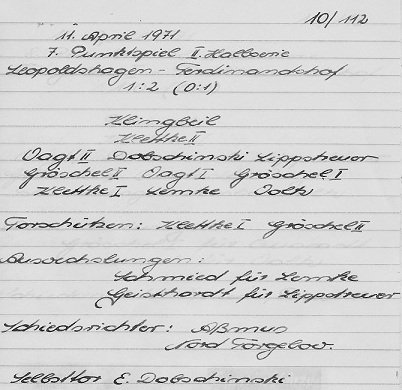 10/112
11. April 1971
7. Punktspiel II. Halbserie
Leopoldshagen - Ferdinandshof
1:2 (0:1)
Klingbeil
Klettke II
Vagt II Dobschinski Lippstreuer
Gröschel II Vagt I Gröschel I
Klettke I Lemke Voltz
Torschützen: Klettke I Gröschel II
Auswechslungen:
Schmied für Lemke
Geiskhardt für Lippstreuer
Schiedsrichter: Aßmus
Nord Torgelow.
Selbsttor E. Dobschinski